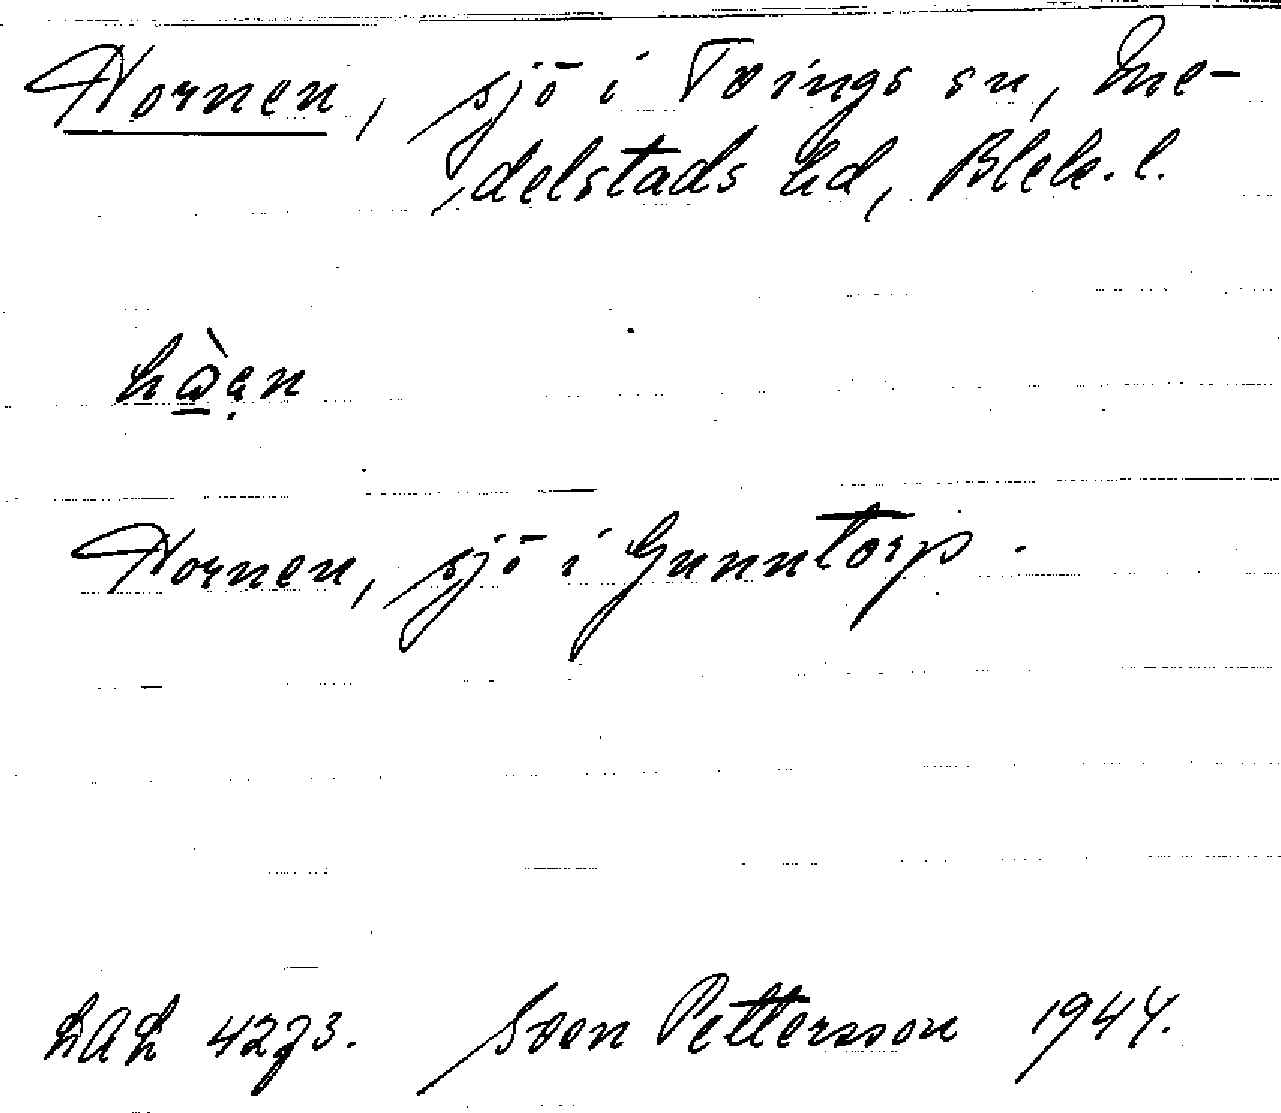 Hornen, sjö i Tvings sn, Me-
delstads hd, Blek. l.
Hornen, sjö i Gunntorp.
LAL 4273. Sven Pettersson 1944.